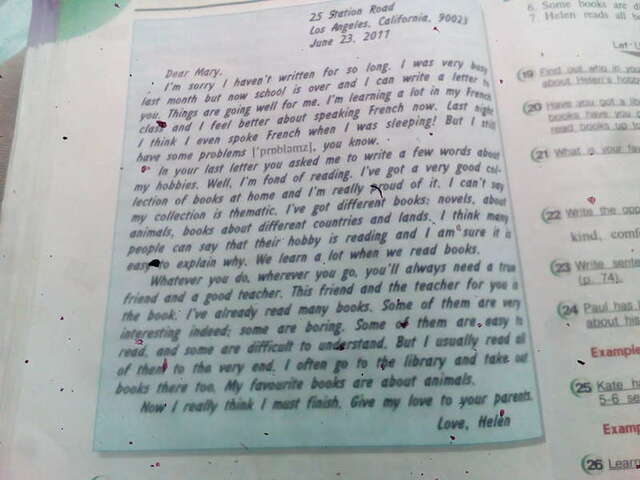 25 Station Road
Los Angeles, California, 90023
June 23, 2011
Dear Mary,
I'm sorry I haven't written for so long. I was very busy
last month but now school is over and I can write a letter to
you. Things are going well for me. I'm learning a lot in my French
class and I feel better about speaking French now. Last night
I think I even spoke French when I was sleeping! But I still
have some problems ['prɒbləmz], you know.
In your last letter you asked me to write a few words about
my hobbies. Well, I'm fond of reading. I've got a very good col-
lection of books at home and I'm really proud of it. I can't say
my collection is thematic. I've got different books: novels, about
animals, books about different countries and lands. I think many
people can say that their hobby is reading and I am sure it is
easy to explain why. We learn a lot when we read books.
Whatever you do, wherever you go, you'll always need a true
friend and a good teacher. This friend and the teacher for you is
the book. I've already read many books. Some of them are very
interesting indeed; some are boring. Some of them are easy to
read, and some are difficult to understand. But I usually read all
of them to the very end. I often go to the library and take out
books there too. My favourite books are about animals.
Now I really think I must finish. Give my love to your parents.
Love, Helen
6. Some books are
7. Helen reads all
19 Find out who in
about Helen's
20 Have you got a
books have you
read books up to
21 What is your
22 Write the
kind,
23 Write
(p. 74).
24 Paul has
about his
Example
25 Kate
5-6
26 Learn